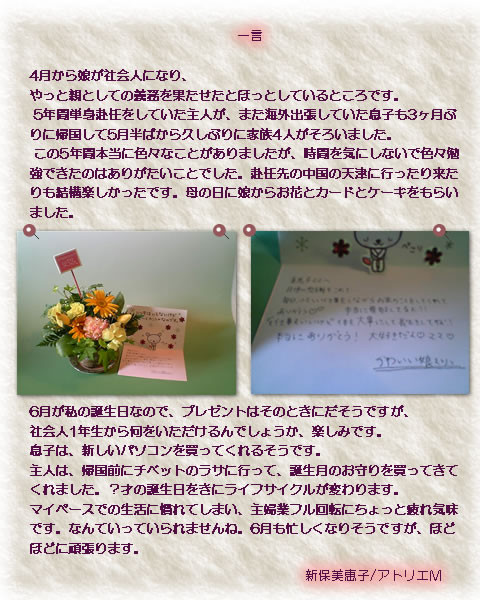 一言
4月から娘が社会人になり、
やっと親としての義務を果たせたとほっとしているところです。
5年間単身赴任をしていた主人が、また海外出張していた息子も3ヶ月ぶ
りに帰国して5月半ばから久しぶりに家族4人がそろいました。
この5年間本当に色々なことがありましたが、時間を気にしないで色々勉
強できたのはありがたいことでした。赴任先の中国の天津に行ったり来た
りも結構楽しかったです。母の日に娘からお花とカードとケーキをもらい
ました。
ぺこり
ありがとう! 大好きだよ
かわいい娘より
6月が私の誕生日なので、プレゼントはそのときにだそうですが、
社会人1年生から何をいただけるんでしょうか、楽しみです。
息子は、新しいパソコンを買ってくれるそうです。
主人は、帰国前にチベットのラサに行って、誕生月のお守りを買ってきて
くれました。?才の誕生日をきにライフサイクルが変わります。
マイペースでの生活に慣れてしまい、主婦業フル回転にちょっと疲れ気味
です。なんていっていられませんね。6月も忙しくなりそうですが、ほど
ほどに頑張ります。
新保美恵子/アトリエM